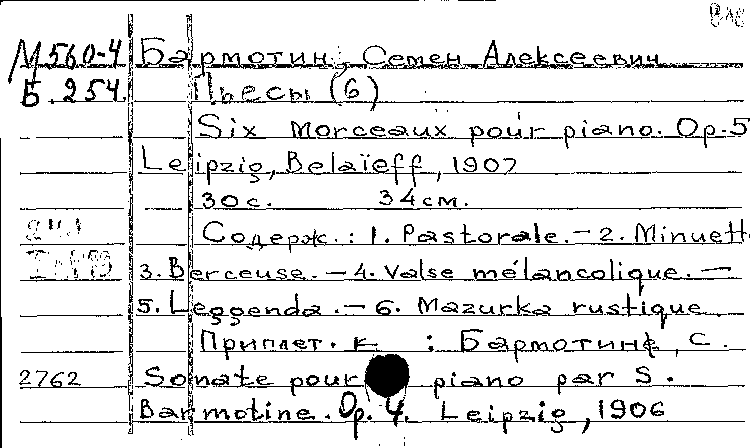 М560-4 Бармотин, Семен Алексеевич
Б.254. Пьесы (6)
Six morceaux pour piano. Op.5
Leipzig, Belaïeff, 1907
30 с. 34 см.
Содерж.: 1. Pastorale. – 2. Minuett
3. Berceuse. – 4. Valse mélancolique. –
5. Leggenda. – 6. Mazurka rustique
Приплет. к : Бармотин, С.
2762 Sonate pour piano par S.
Barmotine. Op. 4. Leipzig, 1906